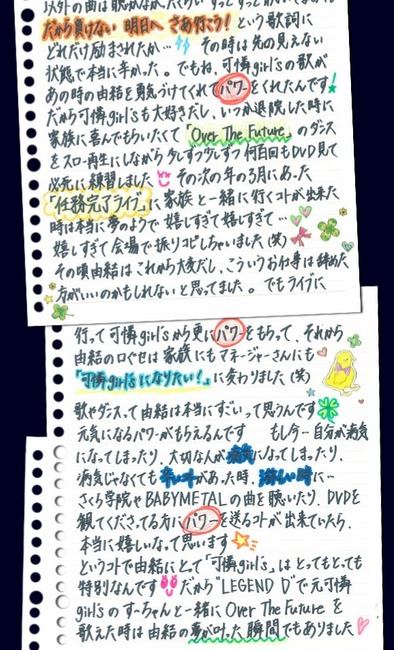 以外の曲は聴かなかったくらい ずっとずっと聴いてました
だから負けない 明日へ さあ行こう! という歌詞に
どれだけ励まされたか… その時は先の見えない
状態で本当に辛かった。でもね、可憐girl'sの歌が
あの時の由結を勇気づけてくれてパワーをくれたんです!
だから可憐girl'sも大好きだし、いつか退院した時に
家族に喜んでもらいたくて「Over The Future」のダンス
をスロー再生にしながら少しずつ少しずつ 何百回もDVD見て
必死に練習しました その次の年の3月にあった
「任務完了ライブ」に家族と一緒に行くコトが出来た
時は本当に夢のようで 嬉しすぎて嬉しすぎて…
嬉しすぎて会場で振りコピしちゃいました(笑)
その頃由結はこれから大変だし、こういうお仕事は辞めた
方がいいのかもしれないと思ってました。でもライブに
行って可憐girl'sから更にパワーをもらって、それから
由結の口ぐせは家族にもマネージャーさんにも
「可憐girl'sになりたい!」に変わりました(笑)
歌やダンスって由結は本当にすごいって思うんです
元気になるパワーがもらえるんです もし今…自分が病気
になってしまったり、大切な人が病気になってしまったり、
病気じゃなくても辛いコトがあった時、淋しい時に…
さくら学院やBABYMETALの曲を聴いたり、DVDを
観てくださってる方にパワーを送るコトが出来ていたら、
本当に嬉しいなって思います
というコトで由結にとって「可憐girl's」はとってもとっても
特別なんです だから"LEGEND D"で元可憐
girl'sのすーちゃんと一緒にOver The Futureを
歌えた時は由結の夢が叶った瞬間でもありました